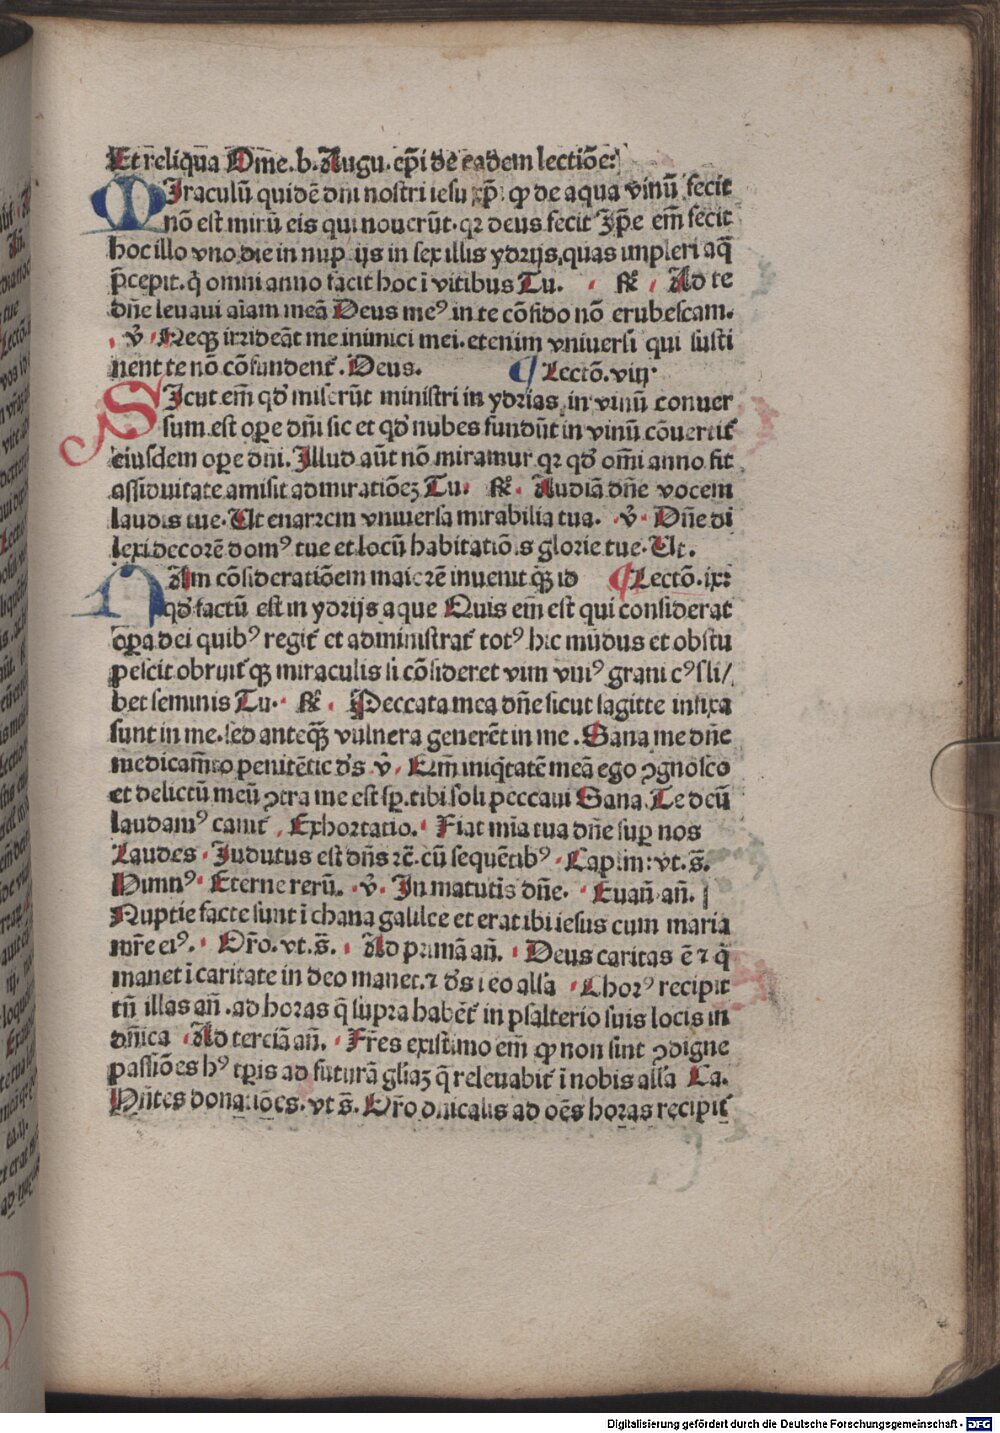 Et reliqua Om̅e. b. Augu. ep̅i de eadem lectio̅e:
MIraculu̅ quide̅ dn̅i nostri iesu xp̅i ꝙ de aqua vinu̅ fecit
no̅ est miru̅ eis qui noueru̅t. qꝛ deus fecit Ip̅e em̅ fecit
hoc illo vno die in nup ijs in sex illis ydrijs, quas impleri aq̅
p̅cepit. q̇ omni anno facit hoc i̅ vitibus Tu. ℟. Ad te
dn̅e leuaui ai̅am mea̅ Deus meꝰ in te co̅fido no̅ erubescam.
v̊ Neqꝫ irridea̅t me inimici mei. etenim vniuersi qui susti
nent te no̅ co̅fundent᷑. Deus. ¶ Lecto̅. viij
SIcut em̅ qd̕ miseru̅t ministri in ydrias, in vinu̅ conuer
sum est oꝑe dn̅i sic et qd̕ nubes fundu̅t in vinu̅ co̅uertit᷑
eiusdem oꝑe dn̅i. Illud au̅t no̅ miramur qꝛ qd̕ om̅i anno fit
assiduitate amisit admiratio̅eꝫ Tu. ℟. Audia̅ dn̅e vocem
laudis tue. Ut enarrem vniuersa mirabilia tua. v̊ Dn̅e di
lexi decore̅ domꝰ tue et locu̅ habitatio̅is glorie tue. Ut.
NAm co̅sideratio̅em maiore̅ inuenit qꝫ̅ id ¶ Lecto̅. ix:
qd̕ factu̅ est in ydrijs aque Quis em̅ est qui considerat
oꝑa dei quibꝰ regit᷑ et administrat᷑ totꝰ hic mu̅dus et obstu
pescit obruit᷑qꝫ miraculis si co̅sideret vim vniꝰ grani cꝰ sli/
bet seminis Tu. ℟. Peccata mea dn̅e sicut sagitte infixa
sunt in me. sed anteqꝫ̅ vulnera genere̅t in me. Sana me dn̅e
medicam̅to penite̅tie d̕s v̊ Em̅ iniq̇tate̅ mea̅ ego ꝯgnosco
et delictu̅ meu̅ ꝯtra me est sꝑ. tibi soli peccaui Sana. Te deu̅
laudamꝰ canit᷑, Exhortatio. Fiat mi̅a tua dn̅e suꝑ nos
Laudes Indutus est dn̅s ⁊c̅. cu̅ seque̅tibꝰ Cap. im: vt. s̅.
Himnꝰ Eterne reru̅. v̊ In matutis dn̅e. Euan̅ an̅.
Nuptie facte sunt i̅ chana galilee et erat ibi iesus cum maria
mr̅e eiꝰ. Or̅o. vt. s̅. Ad prima̅ an̅. Deus caritas e̅ ⁊ q̇
manet i̅ caritate in deo manet. ⁊ d̕s i eo all̅a Chorꝰ recipit
tn̅ illas an̅. ad horas q̅ supra habe̅t᷑ in psalterio suis locis in
dn̅ica Ad tercia̅ an̅. Fr̅es existimo em̅ ꝙ non sint ꝯdigne
passio̅es hꝰ tp̅is ad futura̅ gl̅iaꝫ q̅ releuabit᷑ i̅ nobis all̅a Ca.
Hn̅tes donatio̅es. vt s̅. Or̅o dn̅icalis ad oe̅s horas recipit᷑
Digitalisierung gefördert durch die Deutsche Forschungsgemeinschaft - DFG